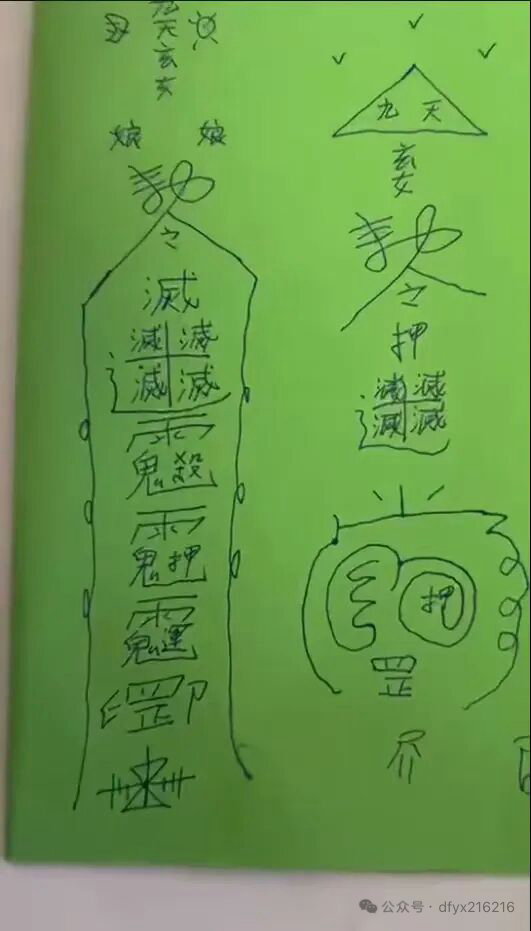 九天玄女
娘 娘
敕
之
滅
滅 滅
滅 滅
雨
鬼 殺
雨
鬼 押
雨
鬼 運
罡
九 天
玄女
敕
之
押
滅 滅
滅 滅
押
罡
公众号 · dfyx216216